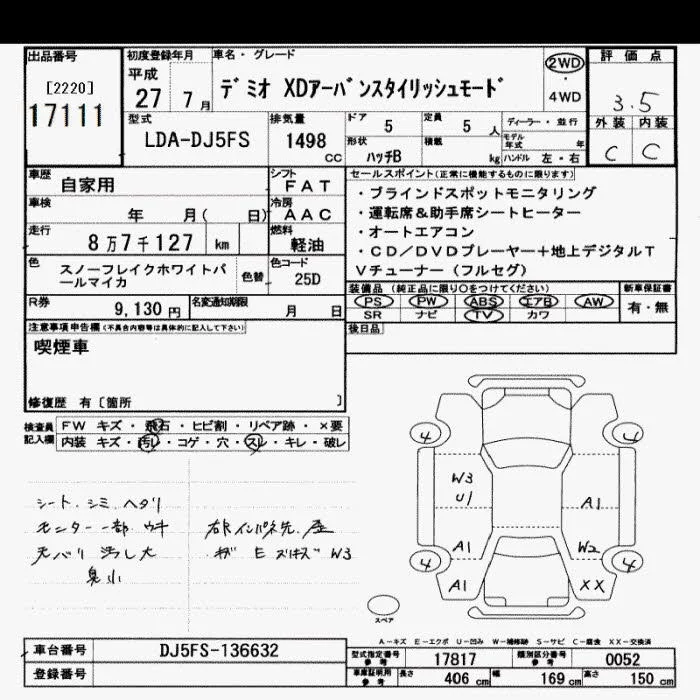 出品番号
[2220]
17111
初度登録年月
平成
27 7月
車名・グレード
デミオ XDアーバンスタイリッシュモード
2WD
・
4WD
評価点
3.5
外装 内装
C C
型式
LDA-DJ5FS
排気量
1498
cc
ドア 5
定員 5 人
形状
ハッチB
積載
kg
ディーラー・並行
モデル年式 年
ハンドル 左・右
車歴
自家用
シフト
FAT
車検
年 月( 日)
冷房
AAC
走行
8万7千127 km
燃料
軽油
色
スノーフレイクホワイトパ
ールマイカ
色替
色コード
25D
R券
9,130 円
名変通知期限
月 日
セールスポイント(正常に機能するものに限ります)
・ブラインドスポットモニタリング
・運転席&助手席シートヒーター
・オートエアコン
・CD/DVDプレーヤー+地上デジタルT
Vチューナー(フルセグ)
装備品 (純正品に限り○をつけてください)
PS PW ABS エアB AW
SR ナビ TV カワ
新車保証書
有・無
後日品
注意事項申告欄(不具合内容等は具体的に記入して下さい)
喫煙車
修復歴 有〔箇所 〕
検査員
記入欄
FW キズ・飛石・ヒビ割・リペア跡・×要
内装 キズ・汚れ・コゲ・穴・スレ・キレ・破レ
シート、シミ、ヘタリ
モニター一部ウキ
天バリ汚し大
臭小
W3
4
4
W3
U1
A1
A1
W2
4
4
A1
XX
スペア
A-キズ E-エクボ U-凹み W-補修跡 S-サビ C-腐食 XX-交換済
車台番号
DJ5FS-136632
登録番号
型式指定番号
参考
17817
類別区分番号
参考
0052
車庫証明用
参考
長さ 406 cm
幅 169 cm
高さ 150 cm